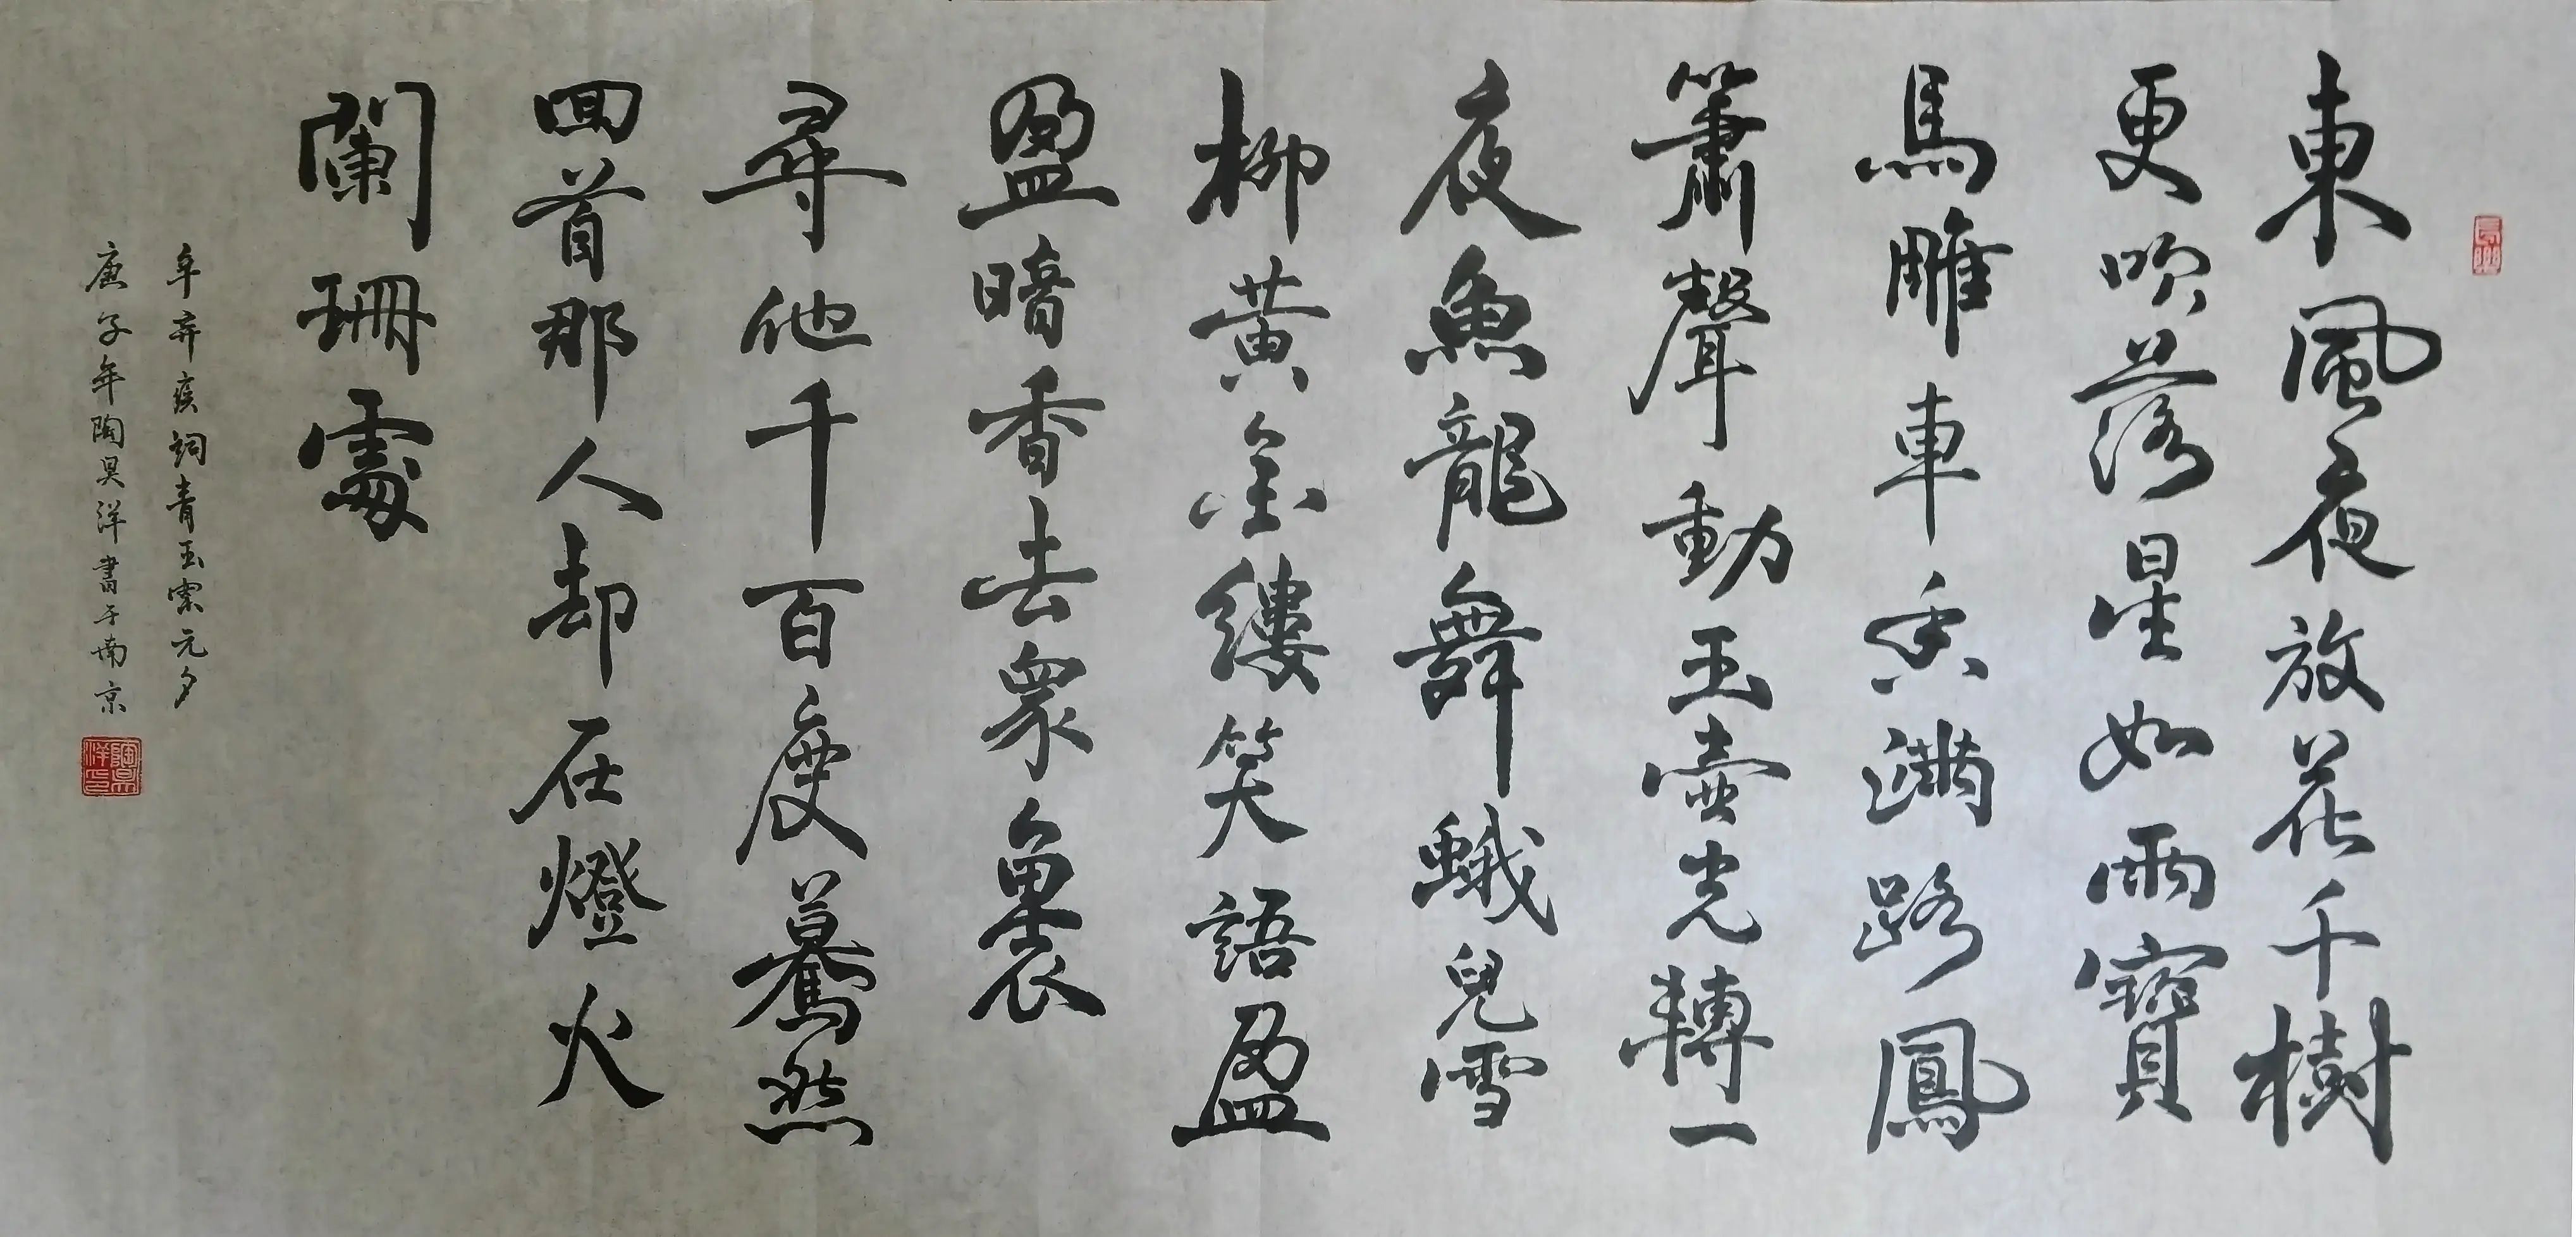 東風夜放花千樹
更吹落星如雨寶
馬雕車香滿路鳳
簫聲動玉壺光轉一
夜魚龍舞蛾兒雪
柳黃金縷笑語盈
盈暗香去眾裏
尋他千百度驀然
回首那人却在燈火
闌珊處
辛弃疾詞青玉案元夕
庚子年陶昊洋書于南京